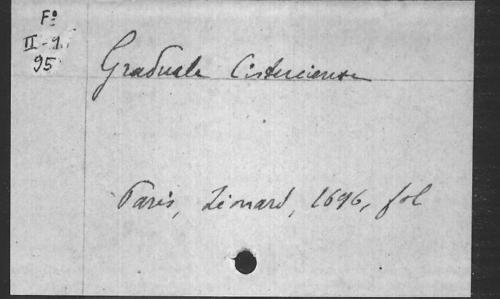 Fº
II-9.
95
Graduale Cisterciense
Paris, Léonard, 1696, fol